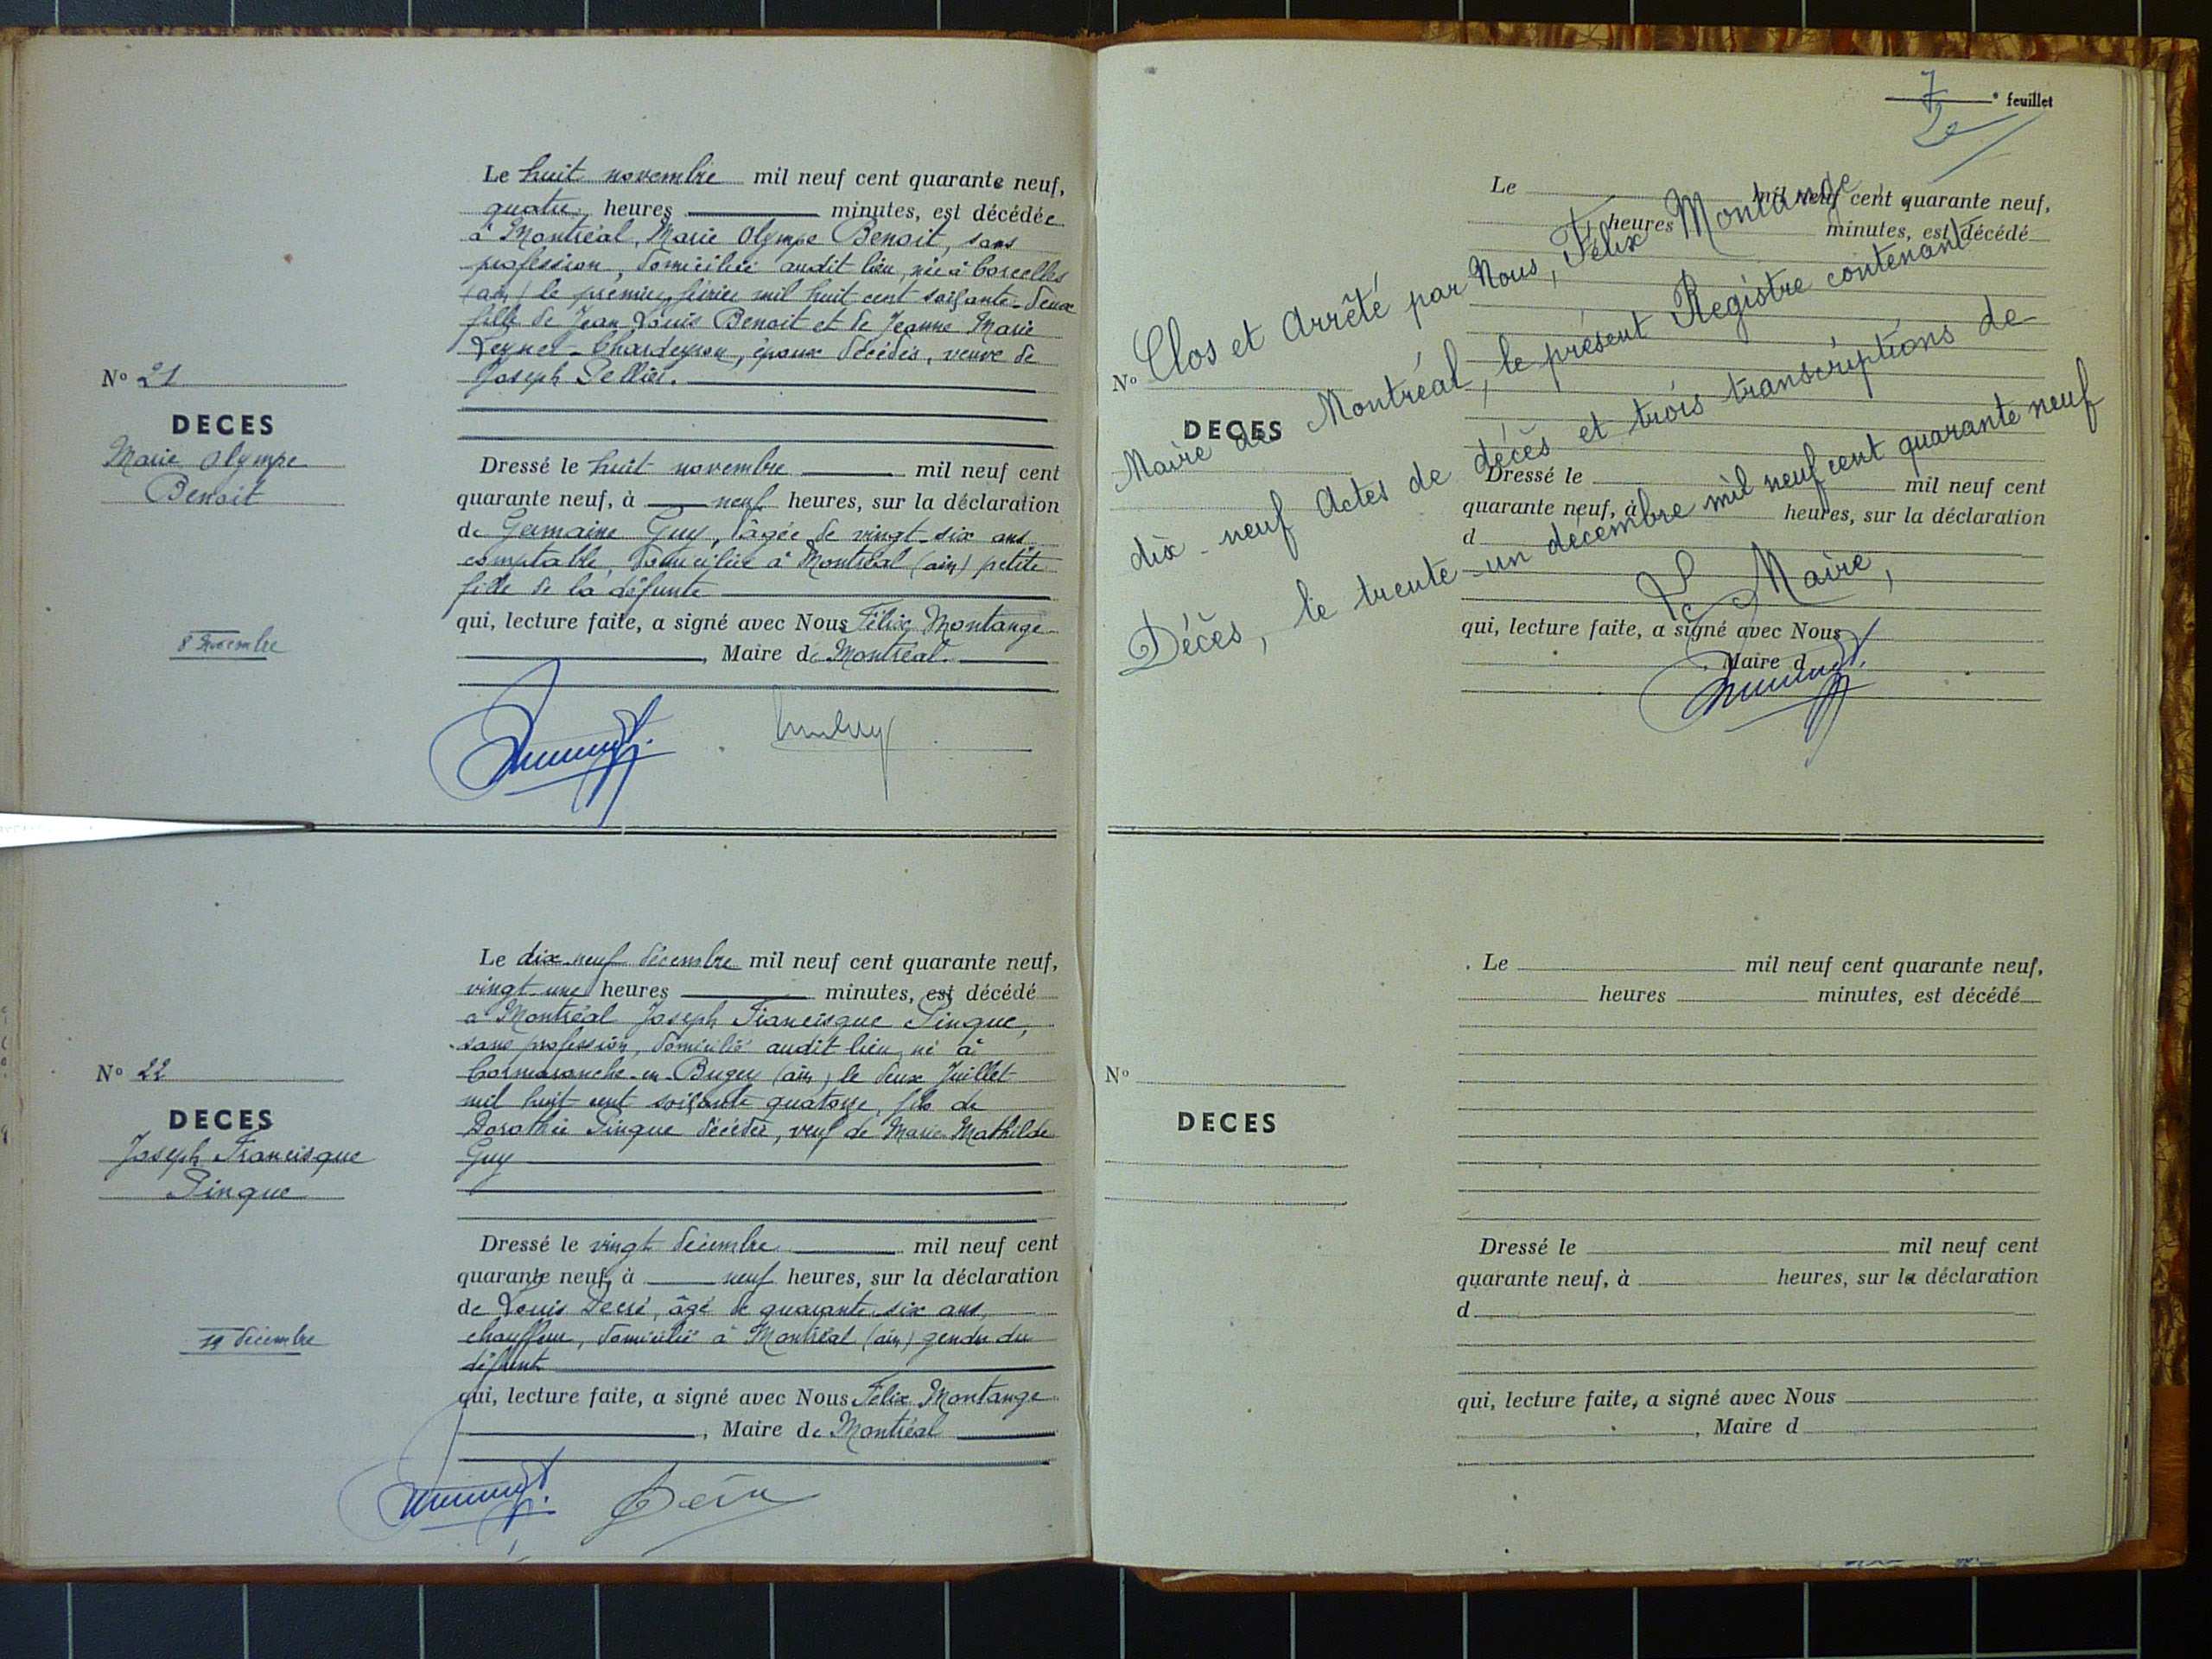 Le huit novembre mil neuf cent quarante neuf,
quatre heures minutes, est décédée
à Montréal, Marie Olympe Benoit, sans
profession, domiciliée audit lieu, née à Corcelles
(ain) le premier février mil huit cent soixante-deux
fille de Jean Louis Benoit et de Jeanne Marie
époux décédés, veuve de
Joseph Tellier.
N° 21
DECES
Marie Olympe
Benoit
8 Novembre
Dressé le huit novembre mil neuf cent
quarante neuf, à neuf heures, sur la déclaration
de Germaine Guy, âgée de vingt-six ans
comptable, domiciliée à Montréal (ain) petite
fille de la défunte
qui, lecture faite, a signé avec Nous Félix Montange
, Maire de Montréal.
Le dix neuf décembre mil neuf cent quarante neuf,
vingt une heures minutes, est décédé
à Montréal Joseph Francisque Pingue,
sans profession, domicilié audit lieu, né à
Cormaranche-en-Bugey (ain) le deux Juillet
mil huit cent soixante quatorze, fils de
Dorothée Pingue décédée, veuf de Marie Mathilde
Guy
N° 22
DECES
Joseph Francisque
Pingue
19 décembre
Dressé le vingt décembre mil neuf cent
quarante neuf, à neuf heures, sur la déclaration
de Louis âgé de quarante six ans,
chauffeur, domicilié à Montréal (ain) gendre du
défunt
qui, lecture faite, a signé avec Nous Félix Montange
, Maire de Montréal
7e feuillet
Le mil neuf cent quarante neuf,
heures minutes, est décédé
N°
DECES
Clos et Arrêté par Nous, Félix Montange,
Maire de Montréal, le présent Registre contenant
dix-neuf Actes de décès et trois transcriptions de
Décès, le trente-un décembre mil neuf cent quarante neuf
Le Maire,
Dressé le mil neuf cent
quarante neuf, à heures, sur la déclaration
d
qui, lecture faite, a signé avec Nous
, Maire d
Le mil neuf cent quarante neuf,
heures minutes, est décédé
N°
DECES
Dressé le mil neuf cent
quarante neuf, à heures, sur la déclaration
d
qui, lecture faite, a signé avec Nous
, Maire d